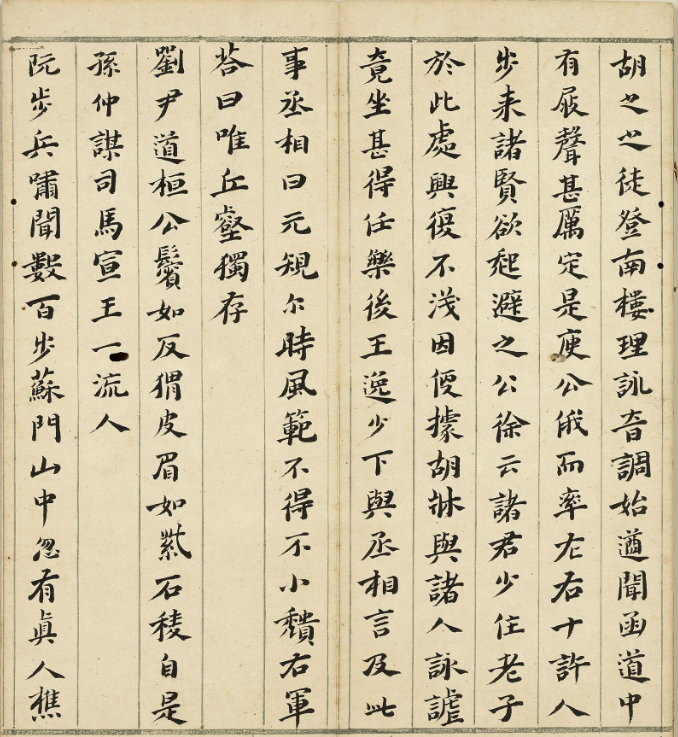 胡之之徒登南樓理詠音調始遒聞函道中
有屐聲甚厲定是庾公俄而率左右十許人
步来諸賢欲起避之公徐云諸君少住老子
於此處興復不浅因便據胡牀與諸人詠謔
竟坐甚得任樂後王逸少下與丞相言及此
事丞相曰元規尓時風範不得不小穨右軍
荅曰唯丘壑獨存
劉尹道桓公鬢如反猬皮眉如紫石稜自是
孫仲謀司馬宣王一流人
阮步兵嘯聞數百步蘇門山中忽有真人樵